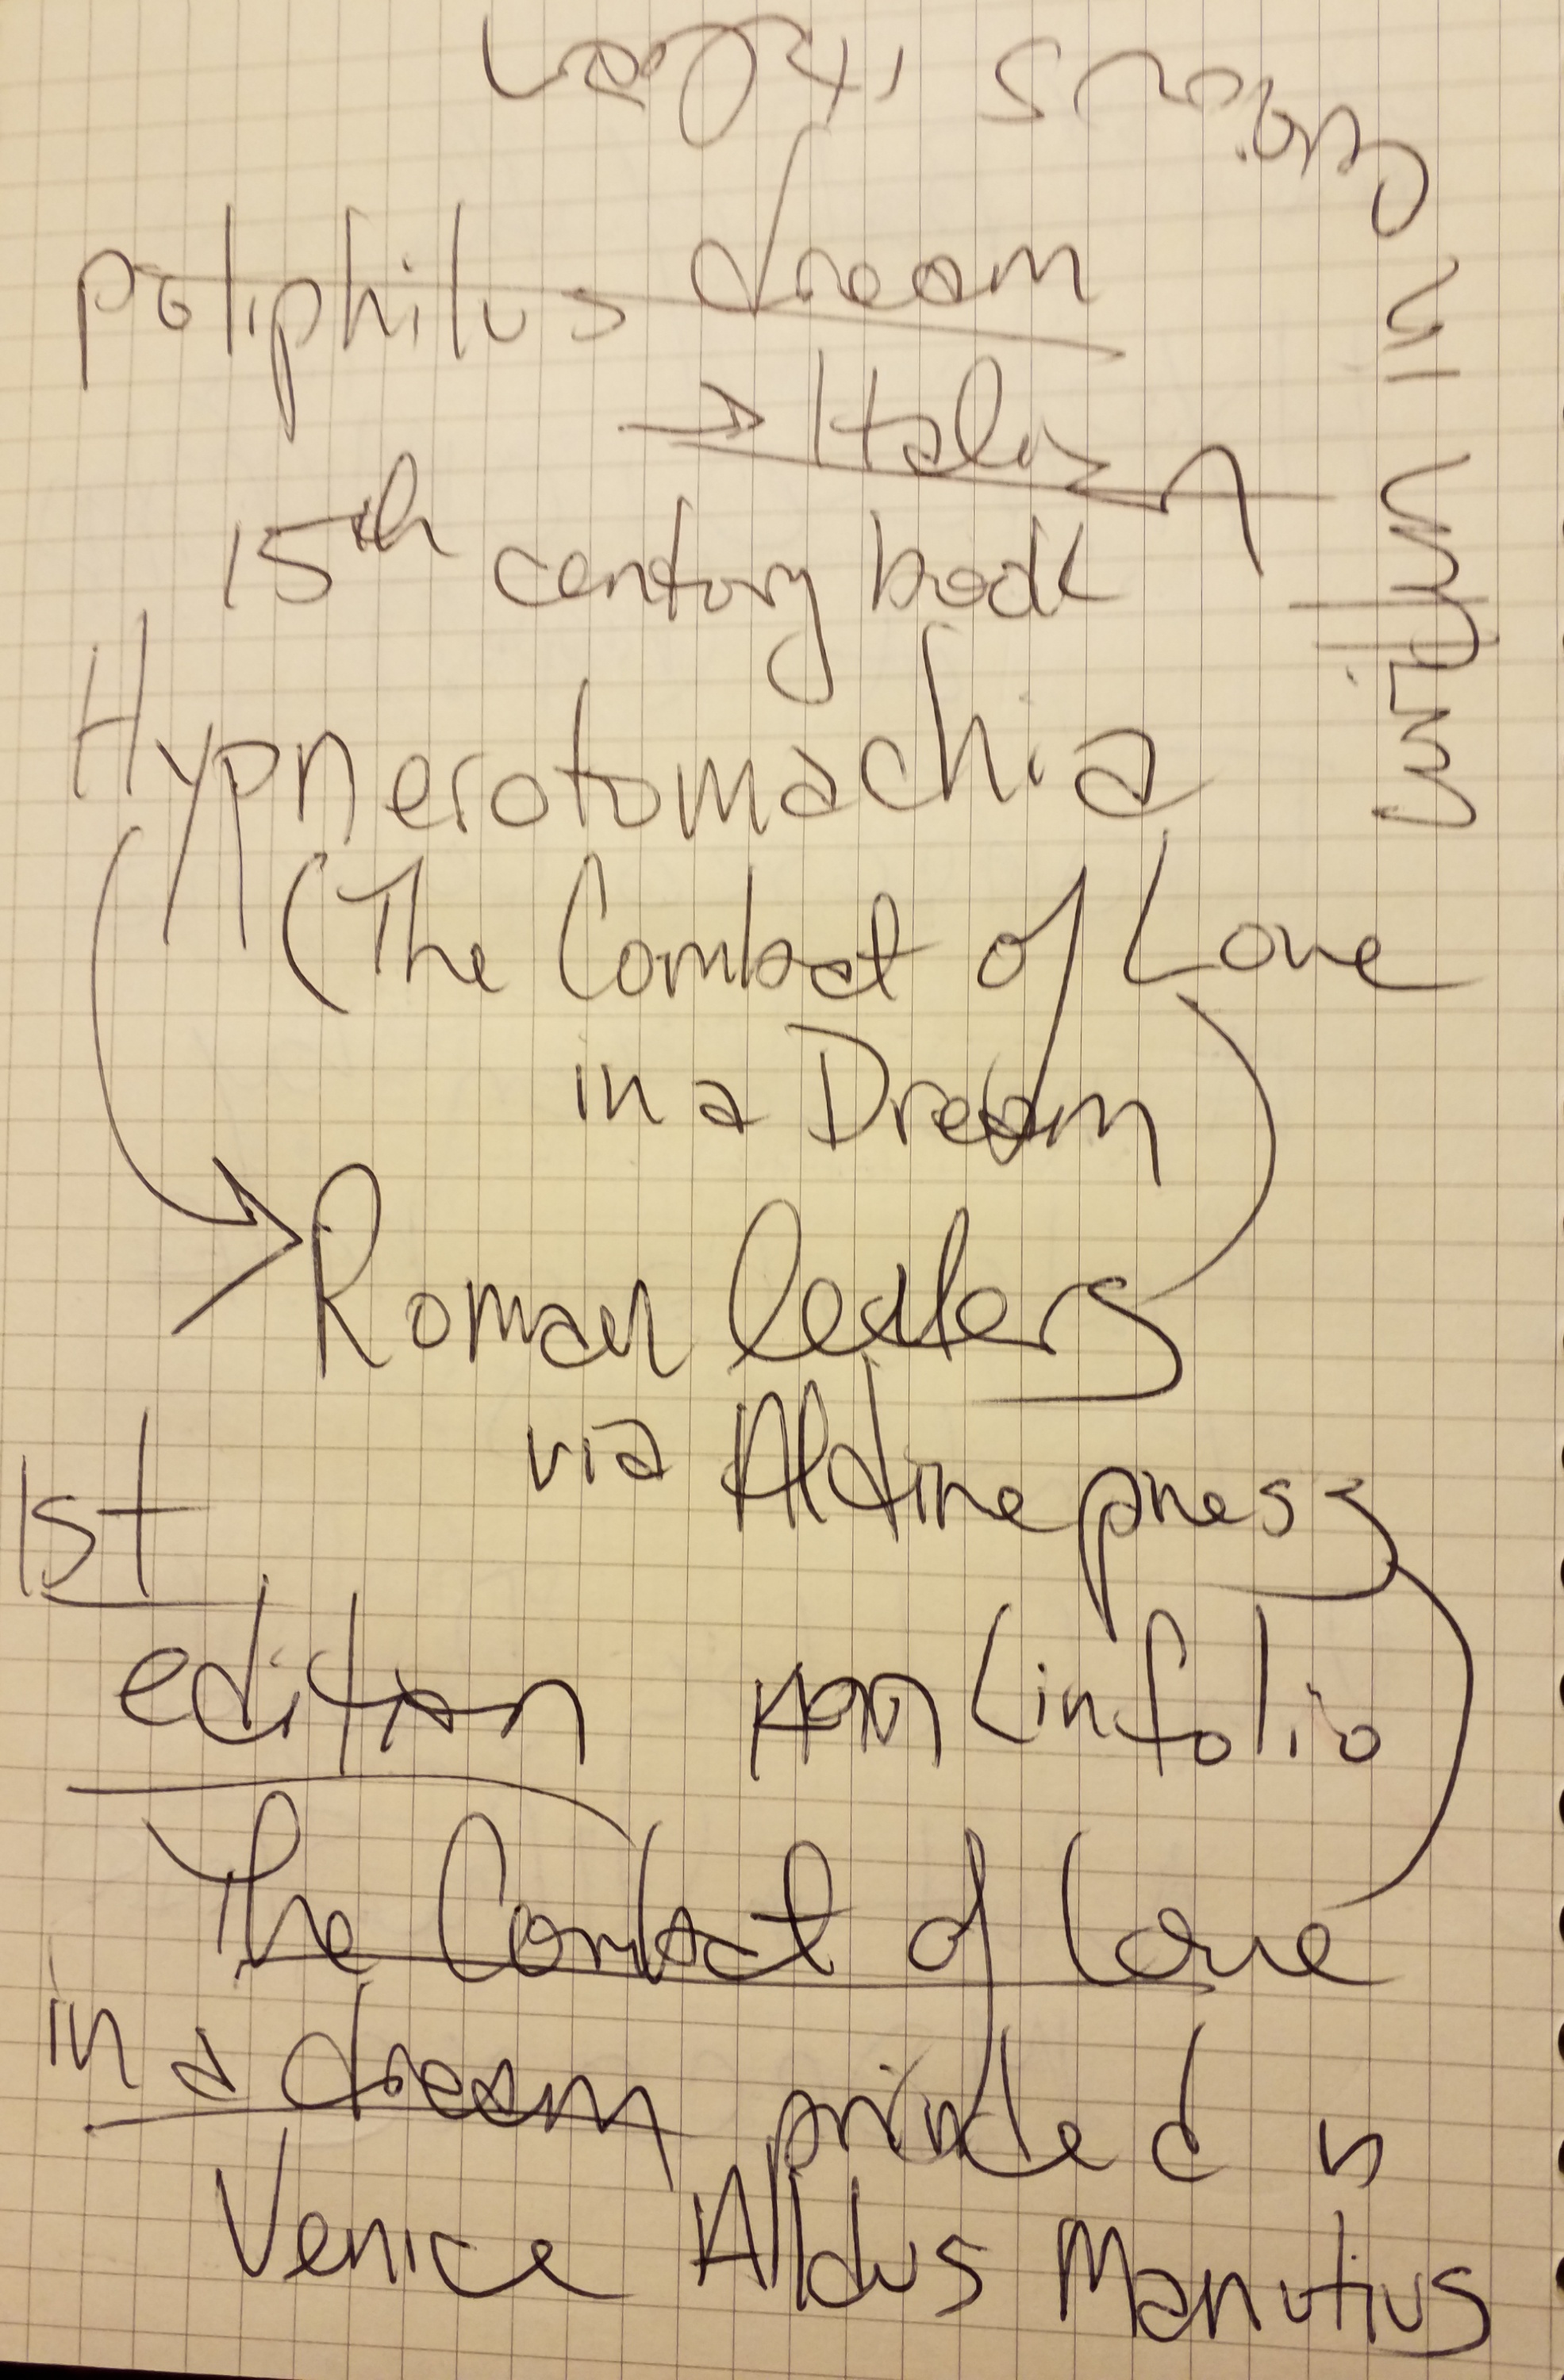 poliphilus dream
→ Italian
15th century book
Hypnerotomachia
(The Combat of Love
in a Dream)
Roman letters
via Aldine press
1st
edition (in folio
The Combat of Love
in a dream printed in
Venice Aldus Manutius